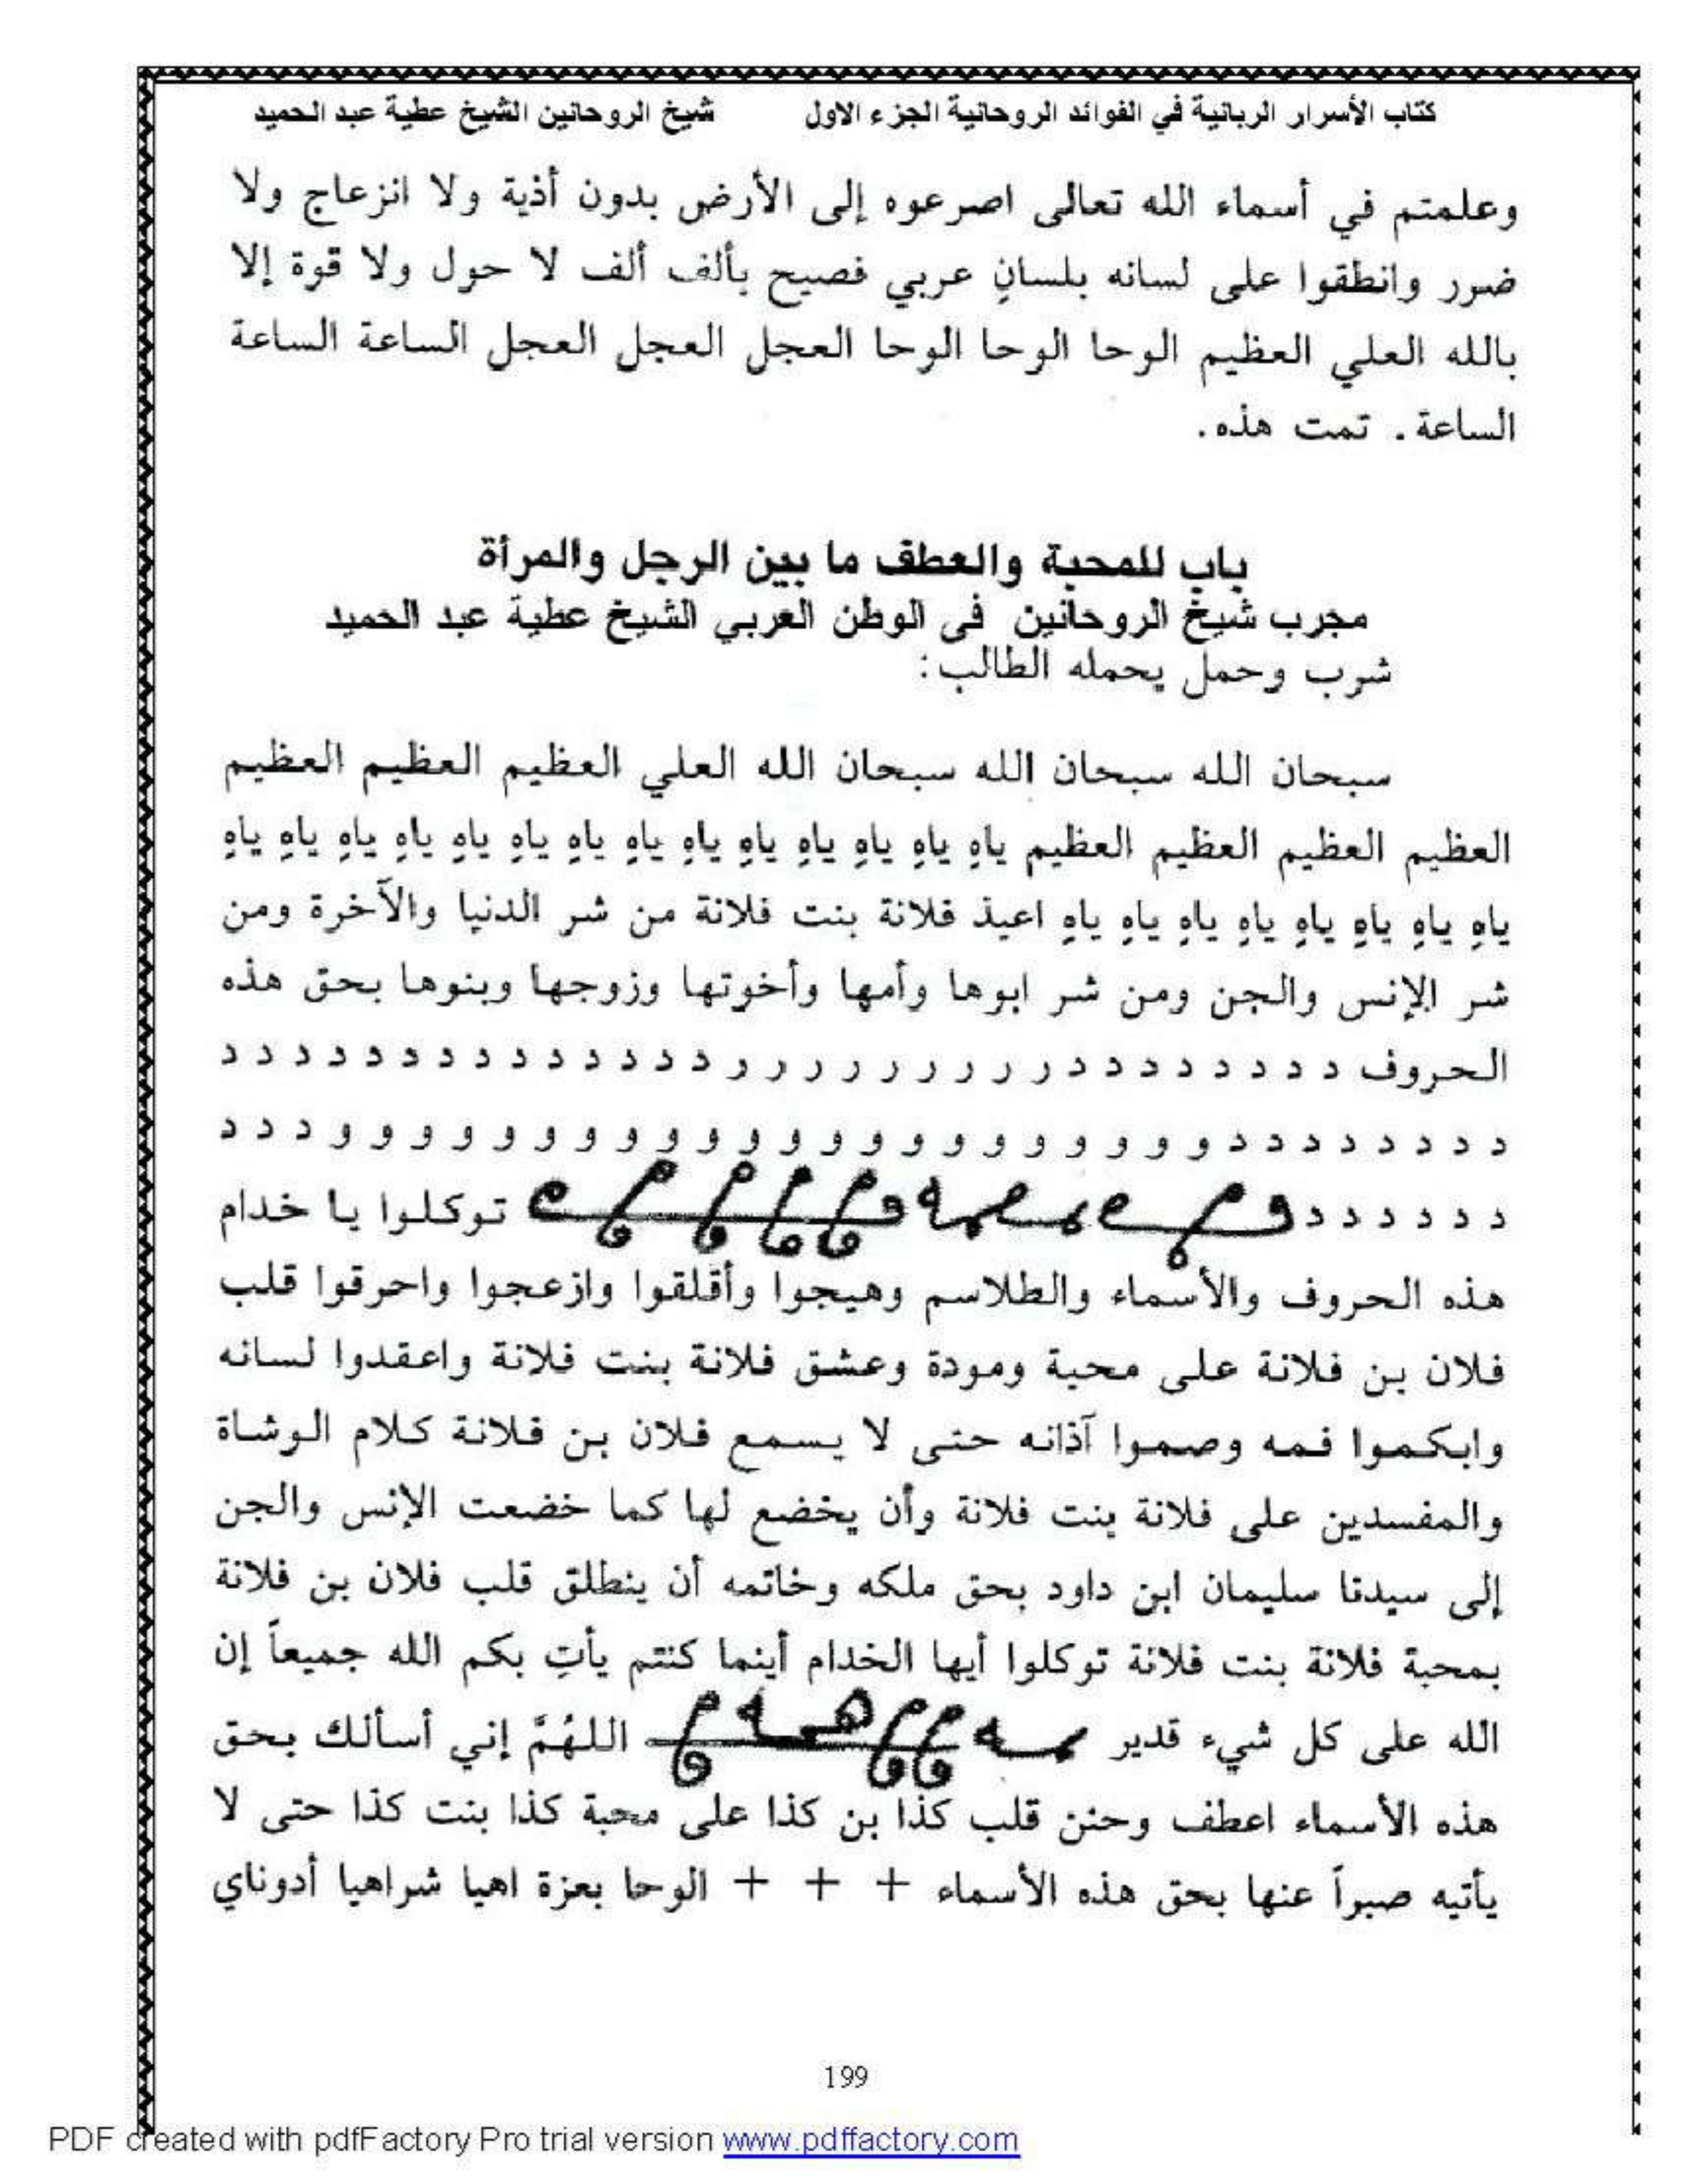 كتاب الأسرار الربانية في الفوائد الروحانية الجزء الاول شيخ الروحانين الشيخ عطية عبد الحميد
وعلمتم في أسماء الله تعالى اصرعوه إلى الأرض بدون أذية ولا انزعاج ولا
ضرر وانطقوا على لسانه بلسانٍ عربي فصيح بألف ألف لا حول ولا قوة إلا
بالله العلي العظيم الوحا الوحا الوحا العجل العجل العجل الساعة الساعة
الساعة. تمت هذه.
باب للمحبة والعطف ما بين الرجل والمرأة
مجرب شيخ الروحانين في الوطن العربي الشيخ عطية عبد الحميد
شرب وحمل يحمله الطالب:
سبحان الله سبحان الله سبحان الله العلي العظيم العظيم العظيم
العظيم العظيم العظيم العظيم ياهِ ياهِ ياهِ ياهِ ياهِ ياهِ ياهِ ياهِ ياهِ ياهِ ياهِ ياهِ ياهِ ياهِ
ياهِ ياهِ ياهِ ياهِ ياهِ ياهِ ياهِ ياهِ اعيذ فلانة بنت فلانة من شر الدنيا والآخرة ومن
شر الإنس والجن ومن شر ابوها وأمها وأخوتها وزوجها وبنوها بحق هذه
الحروف د د د د د د د د ر ر ر ر ر ر ر ر ر د د د د د د د د د د د د د د
د د د د د د د د و و و و و و و و و و و و و و و و و و و و و و د د د
د د د د د د توكلوا يا خدام
هذه الحروف والأسماء والطلاسم وهيجوا وأقلقوا وازعجوا واحرقوا قلب
فلان بن فلانة على محبة ومودة وعشق فلانة بنت فلانة واعقدوا لسانه
وابكموا فمه وصموا آذانه حتى لا يسمع فلان بن فلانة كلام الوشاة
والمفسدين على فلانة بنت فلانة وأن يخضع لها كما خضعت الإنس والجن
إلى سيدنا سليمان ابن داود بحق ملكه وخاتمه أن ينطلق قلب فلان بن فلانة
بمحبة فلانة بنت فلانة توكلوا أيها الخدام أينما كنتم يأتِ بكم الله جميعاً إن
الله على كل شيء قدير اللهُمَّ إني أسألك بحق
هذه الأسماء اعطف وحنن قلب كذا بن كذا على محبة كذا بنت كذا حتى لا
يأتيه صبراً عنها بحق هذه الأسماء + + + الوحا بعزة اهيا شراهيا أدوناي
199
PDF created with pdfFactory Pro trial version www.pdffactory.com